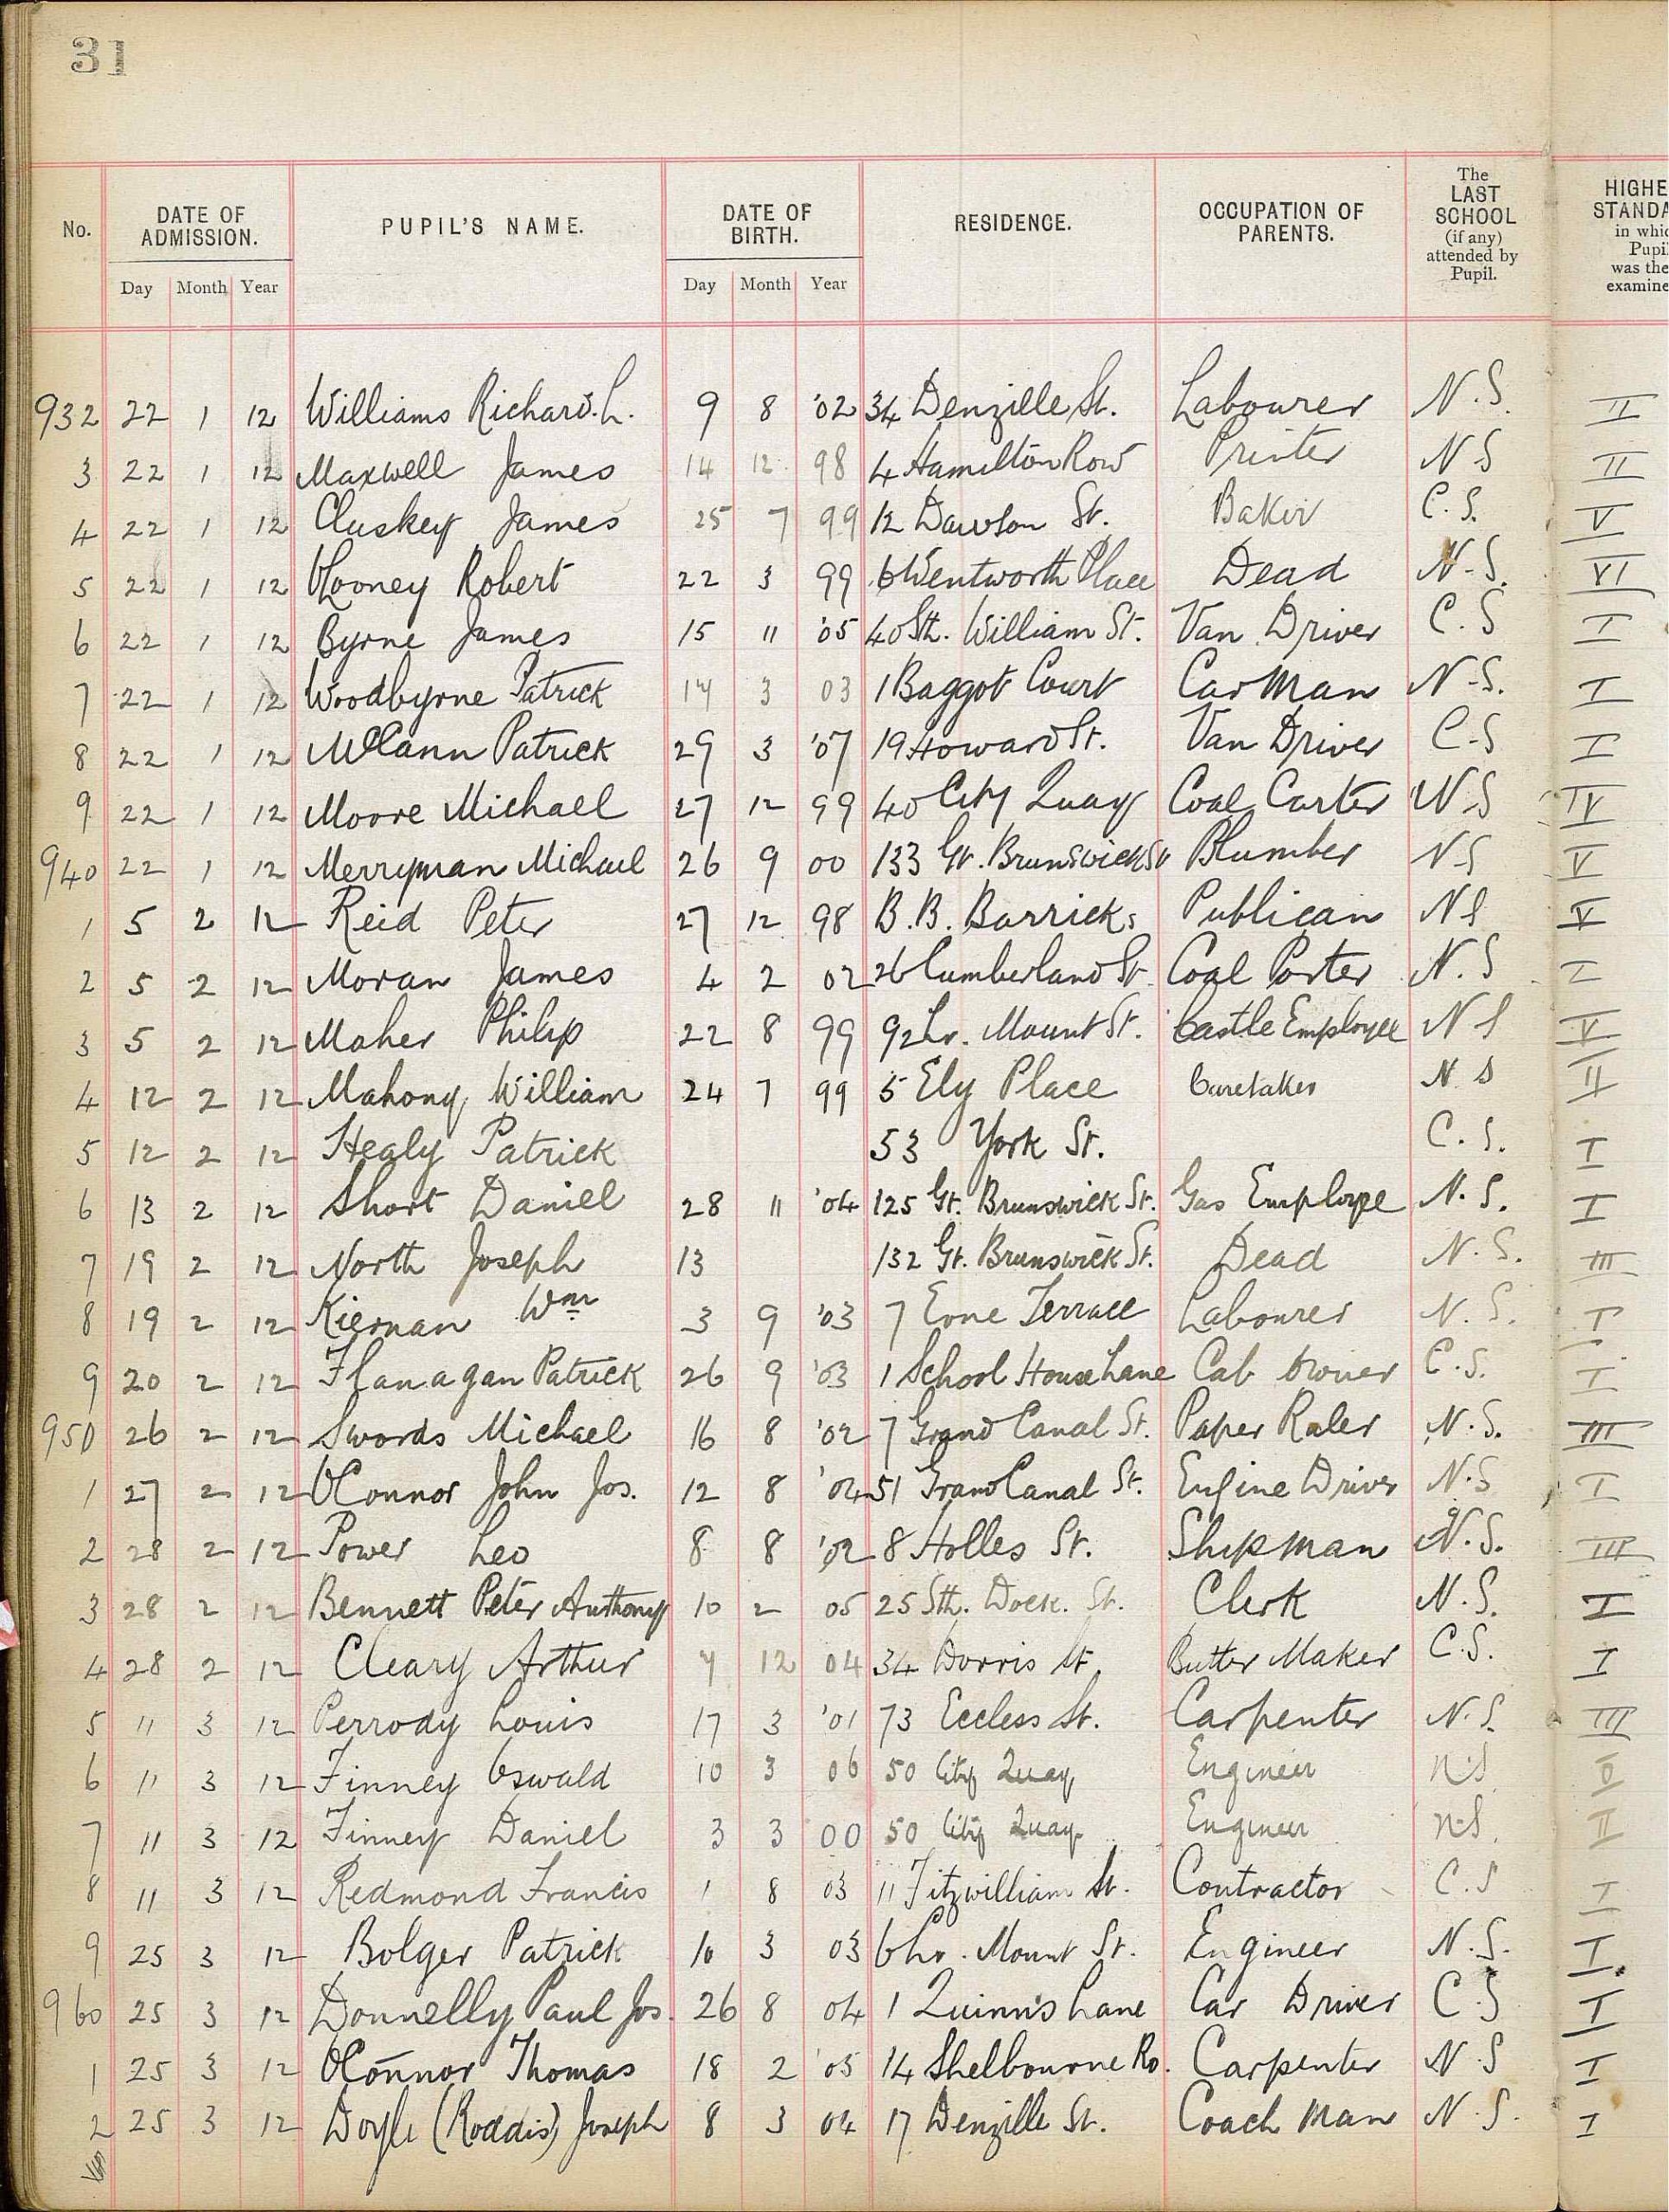 31
No.
DATE OF ADMISSION.
PUPIL'S NAME.
DATE OF BIRTH.
RESIDENCE.
OCCUPATION OF PARENTS.
The LAST SCHOOL (if any) attended by Pupil.
HIGHE
STANDA
in whic
Pupi
was the
examine
Day Month Year Day Month Year
932 22 1 12 Williams Richard. L. 9 8 '02 34 Denzille St. Labourer N.S. II
3 22 1 12 Maxwell James 14 12 98 4 Hamilton Row Printer N S II
4 22 1 12 Cluskey James 25 7 99 12 Dawson St. Baker C.S. V
5 22 1 12 Robert 22 3 99 6 Wentworth Place Dead N.S. VI
6 22 1 12 Byrne James 15 11 '05 40 Sth. William St. Van Driver C.S I
7 22 1 12 Woodbyrne Patrick 14 3 03 1 Baggot Court Car Man N.S. I
8 22 1 12 McCann Patrick 29 3 '07 19 Howard St. Van Driver C.S I
9 22 1 12 Moore Michael 27 12 99 40 City Quay Coal Carter N.S IV
940 22 1 12 Merryman Michael 26 9 00 133 Gt. Brunswick St Plumber N.S V
1 5 2 12 Reid Peter 27 12 98 B.B. Barricks Publican N S V
2 5 2 12 Moran James 4 2 02 26 Cumberland St Coal Porter N.S I
3 5 2 12 Maher Philip 22 8 99 92 Lr. Mount St. Castle Employee N S V
4 12 2 12 Mahony William 24 7 99 5 Ely Place Caretaker N S II
5 12 2 12 Healy Patrick 53 York St. C.S. I
6 13 2 12 Short Daniel 28 11 '04 125 Gt. Brunswick St. Gas Employee N.S. I
7 19 2 12 North Joseph 13 132 Gt. Brunswick St. Dead N.S. III
8 19 2 12 Kiernan Wm 3 9 '03 7 Erne Terrace Labourer N.S. I
9 20 2 12 Flanagan Patrick 26 9 '03 1 School House Lane Cab Owner C.S. I
950 26 2 12 Swords Michael 16 8 '02 7 Grand Canal St. Paper Ruler N.S. III
1 27 2 12 O'Connor John Jos. 12 8 '04 51 Grand Canal St. Engine Driver N.S I
2 28 2 12 Power Leo 8 8 '02 8 Holles St. Shipman N.S. III
3 28 2 12 Bennett Peter Anthony 10 2 05 25 Sth. Dock. St. Clerk N.S. I
4 28 2 12 Cleary Arthur 7 12 04 34 Dorris St Butter Maker C.S. I
5 11 3 12 Perrody Louis 17 3 '01 73 Eccless St. Carpenter N.S. III
6 11 3 12 Finney Oswald 10 3 06 50 City Quay Engineer N.S 0
7 11 3 12 Finney Daniel 3 3 00 50 City Quay Engineer N.S. II
8 11 3 12 Redmond Francis 1 8 03 11 Fitzwilliam St. Contractor C.S I
9 25 3 12 Bolger Patrick 10 3 03 6 Lr. Mount St. Engineer N.S. I
960 25 3 12 Donnelly Paul Jos. 26 8 04 1 Quinn's Lane Car Driver C.S I
1 25 3 12 O'Connor Thomas 18 2 '05 14 Shelbourne Rd. Carpenter N.S I
2 25 3 12 Doyle (Roddis) Joseph 8 3 04 17 Denzille St. Coach Man N.S. I